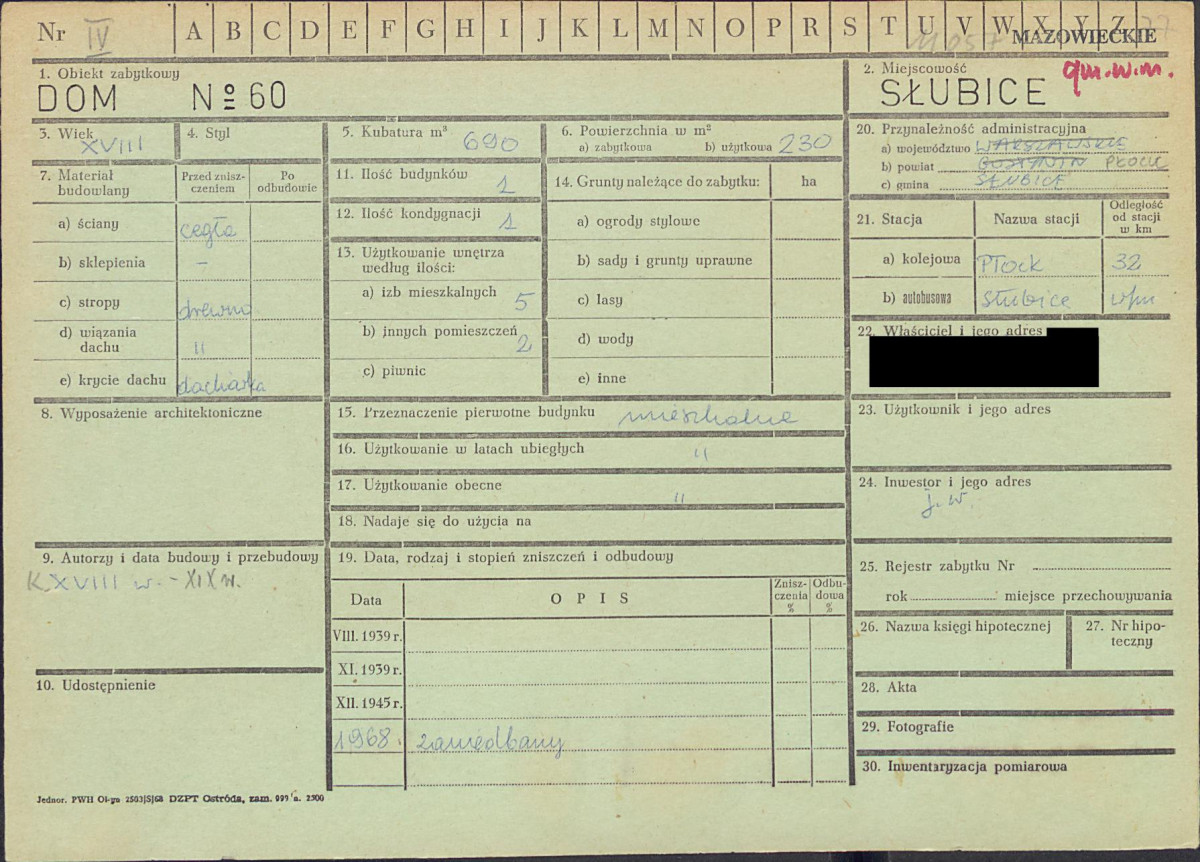 Nr IV A B C D E F G H I J K L M N O P R S T U V W X Y Z
MAZOWIECKIE
1. Obiekt zabytkowy
DOM № 60
2. Miejscowość
SŁUBICE gm.w.m.
3. Wiek XVIII
4. Styl
5. Kubatura m³ 690
6. Powierzchnia w m²
a) zabytkowa b) użytkowa 230
7. Materiał budowlany
Przed znisz-
czeniem
Po
odbudowie
a) ściany cegła
b) sklepienia –
c) stropy drewno
d) wiązania
dachu "
e) krycie dachu dachówka
8. Wyposażenie architektoniczne
9. Autorzy i data budowy i przebudowy
K. XVIII w. - XIX w.
10. Udostępnienie
11. Ilość budynków 1
12. Ilość kondygnacji 1
13. Użytkowanie wnętrza
według ilości:
a) izb mieszkalnych 5
b) innych pomieszczeń 2
c) piwnic
14. Grunty należące do zabytku: ha
a) ogrody stylowe
b) sady i grunty uprawne
c) lasy
d) wody
e) inne
15. Przeznaczenie pierwotne budynku mieszkalne
16. Użytkowanie w latach ubiegłych "
17. Użytkowanie obecne "
18. Nadaje się do użycia na
19. Data, rodzaj i stopień zniszczeń i odbudowy
Data OPIS
Znisz-
czenia
%
Odbu-
dowa
%
VIII. 1939 r.
XI. 1939 r.
XII. 1945 r.
1968. zaniedbany
20. Przynależność administracyjna
a) województwo WARSZAWSKIE
b) powiat GOSTYNIN PŁOCK
c) gmina SŁUBICE
21. Stacja Nazwa stacji
Odległość
od stacji
w km
a) kolejowa Płock 32
b) autobusowa Słubice w/m
22. Właściciel i jego adres
23. Użytkownik i jego adres
24. Inwestor i jego adres
j.w.
25. Rejestr zabytku Nr
rok miejsce przechowywania
26. Nazwa księgi hipotecznej
27. Nr hipo-
teczny
28. Akta
29. Fotografie
30. Inwentaryzacja pomiarowa
Jednor. PWH Ol-yn 2503/S/68 DZPT Ostróda, zam. 099 a. 2300